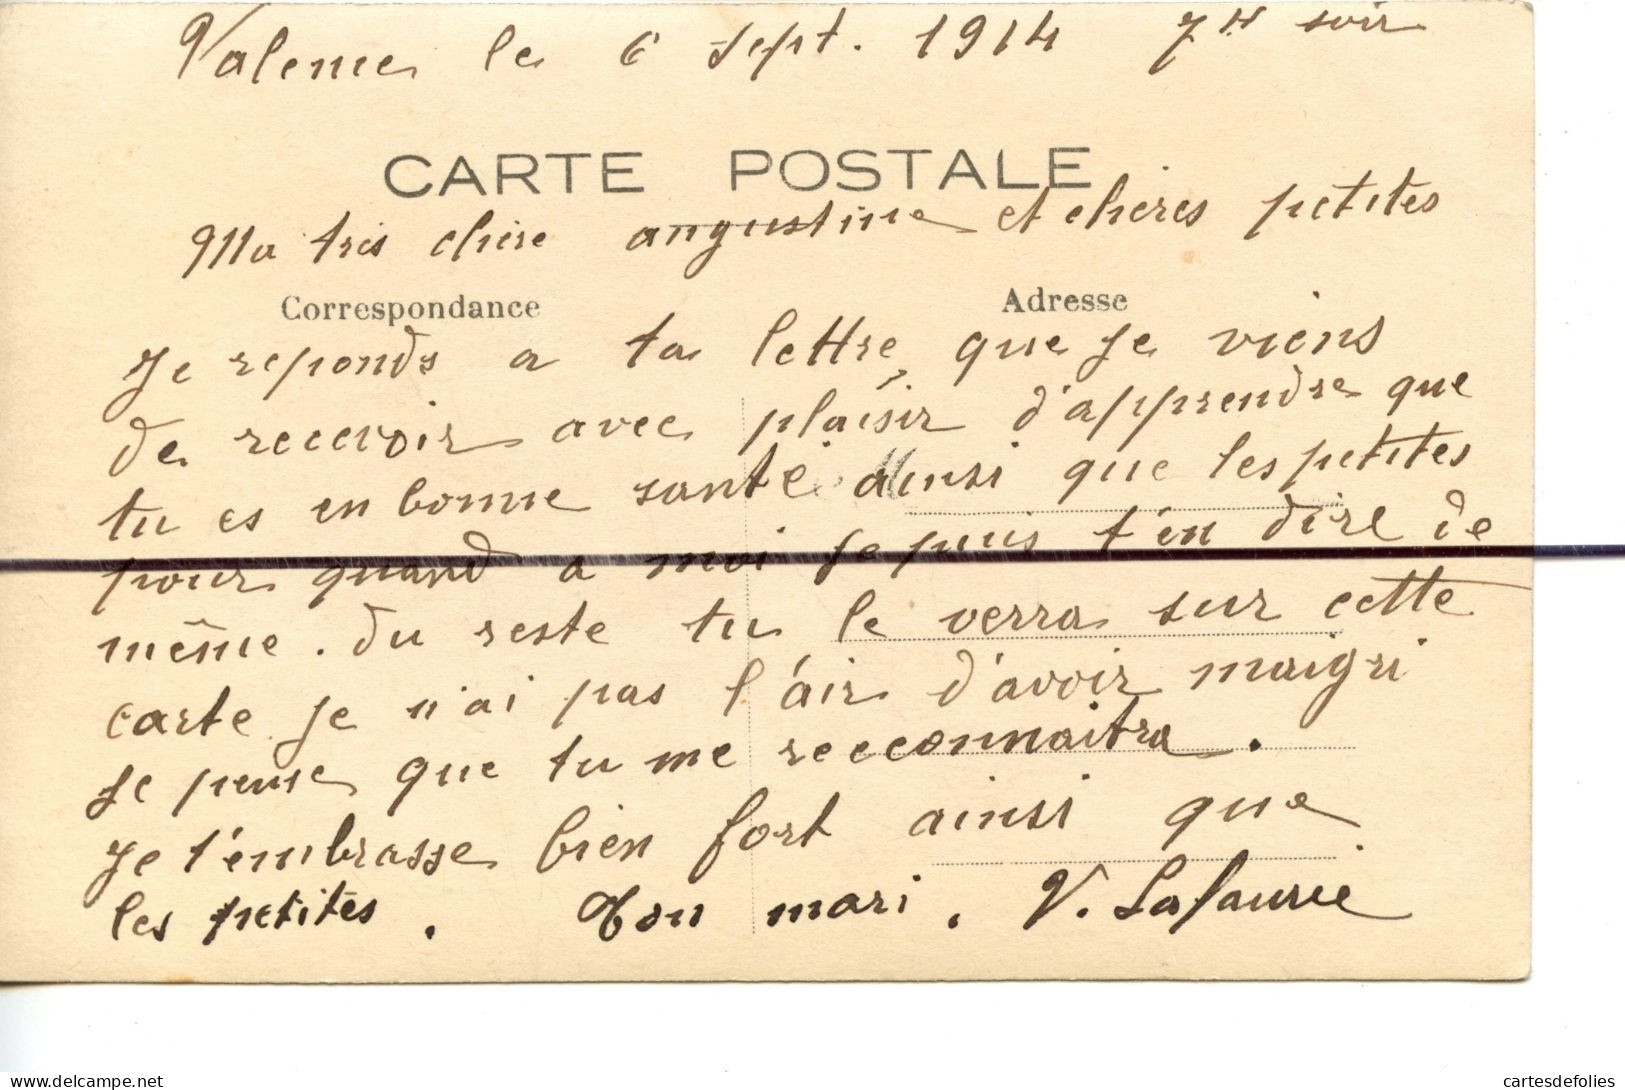 Valence le 6 Sept. 1914 7H soir
CARTE POSTALE
Ma trés chére angustine et chéres petites
Correspondance Adresse
Je reponds a ta lettre, que je viens
de recevoir avec plaisir d'apprendre que
tu es en bonne santé ainsi que les petites
pour quand a moi je puis t'en dire de
même. du reste tu le verra sur cette
carte je n'ai pas l'air d'avoir maigri
je pense que tu me recconnaitra.
Je t'embrasse bien fort ainsi que
les petites. Ton mari. V. Lafaurie
cartesdefolies